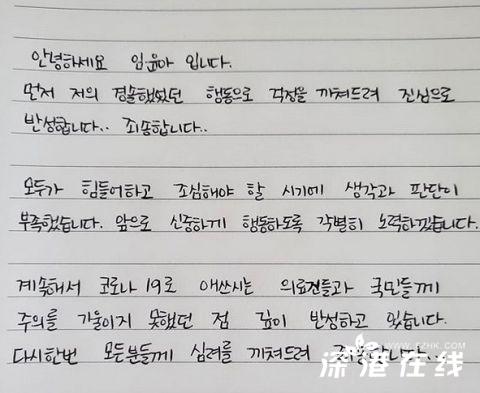 안녕하세요 임윤아 입니다.
먼저 저의 경솔했었던 행동으로 걱정을 끼쳐드려 진심으로
반성합니다.. 죄송합니다..
모두가 힘들어하고 조심해야 할 시기에 생각과 판단이
부족했습니다. 앞으로 신중하게 행동하도록 각별히 노력하겠습니다.
계속해서 코로나 19로 애쓰시는 의료진들과 국민들께
주의를 기울이지 못했던 점 깊이 반성하고 있습니다.
다시한번 모든분들께 심려를 끼쳐드려 죄송합니다..
www.szhk.com
深港在线